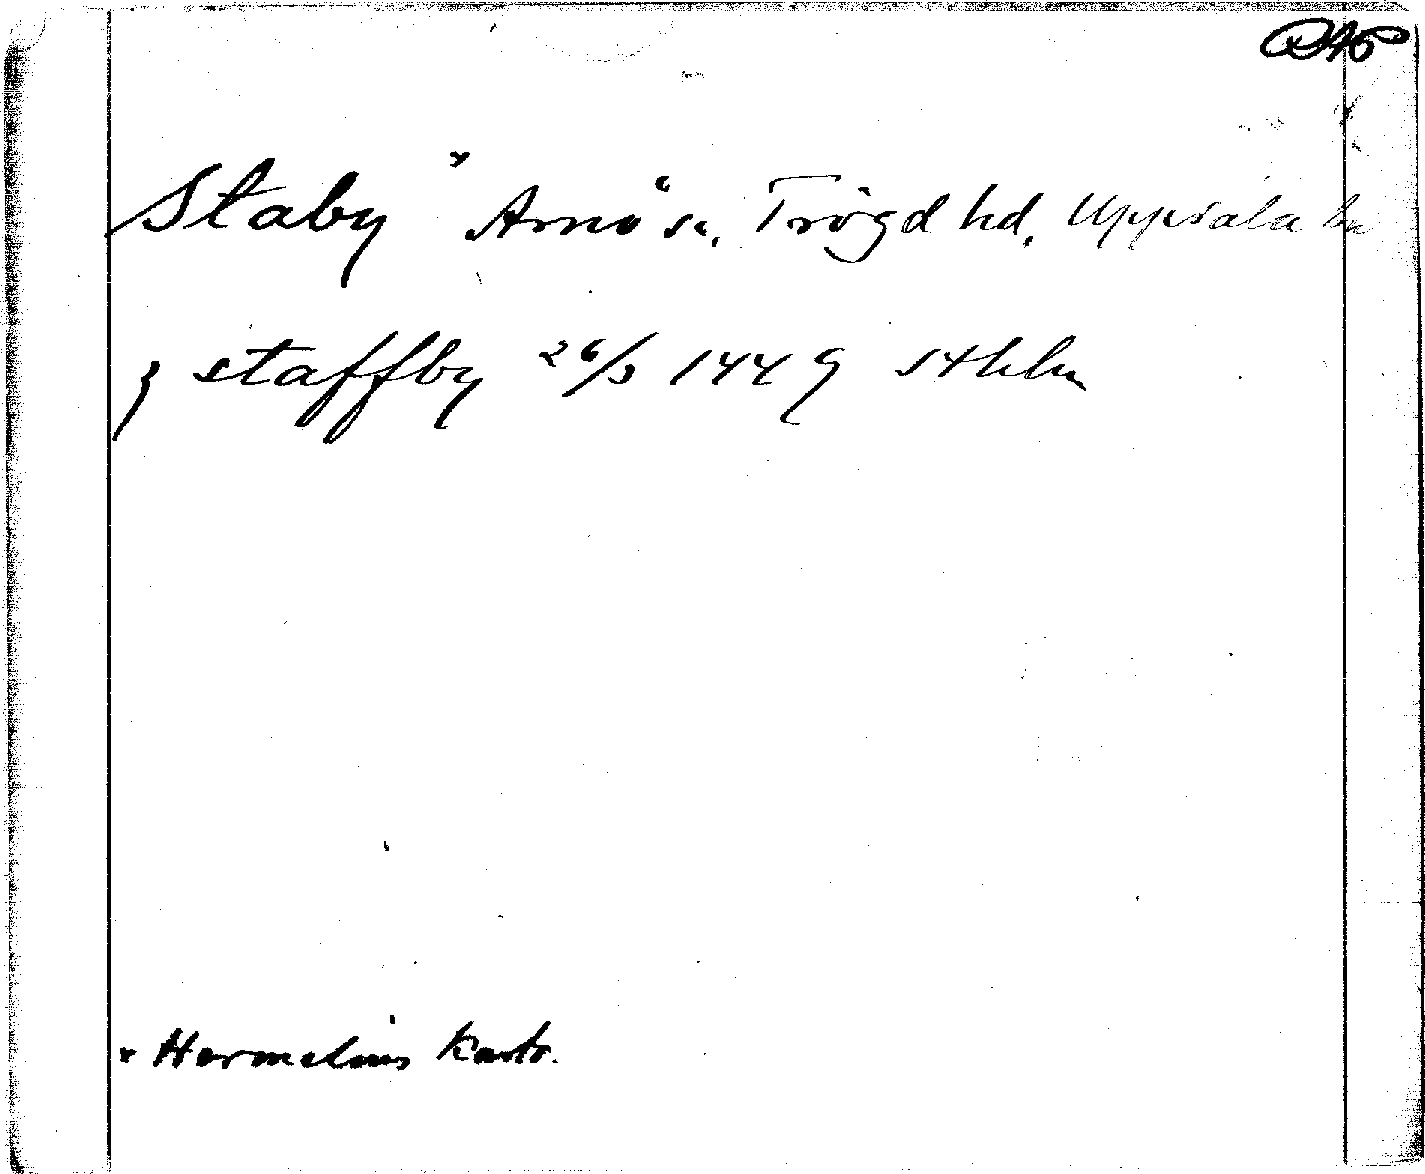 Staby × Arnö sn, Trögd hd, Uppsala län
j staffby 26/3 1449 Sthlm
× Hermelins karta.